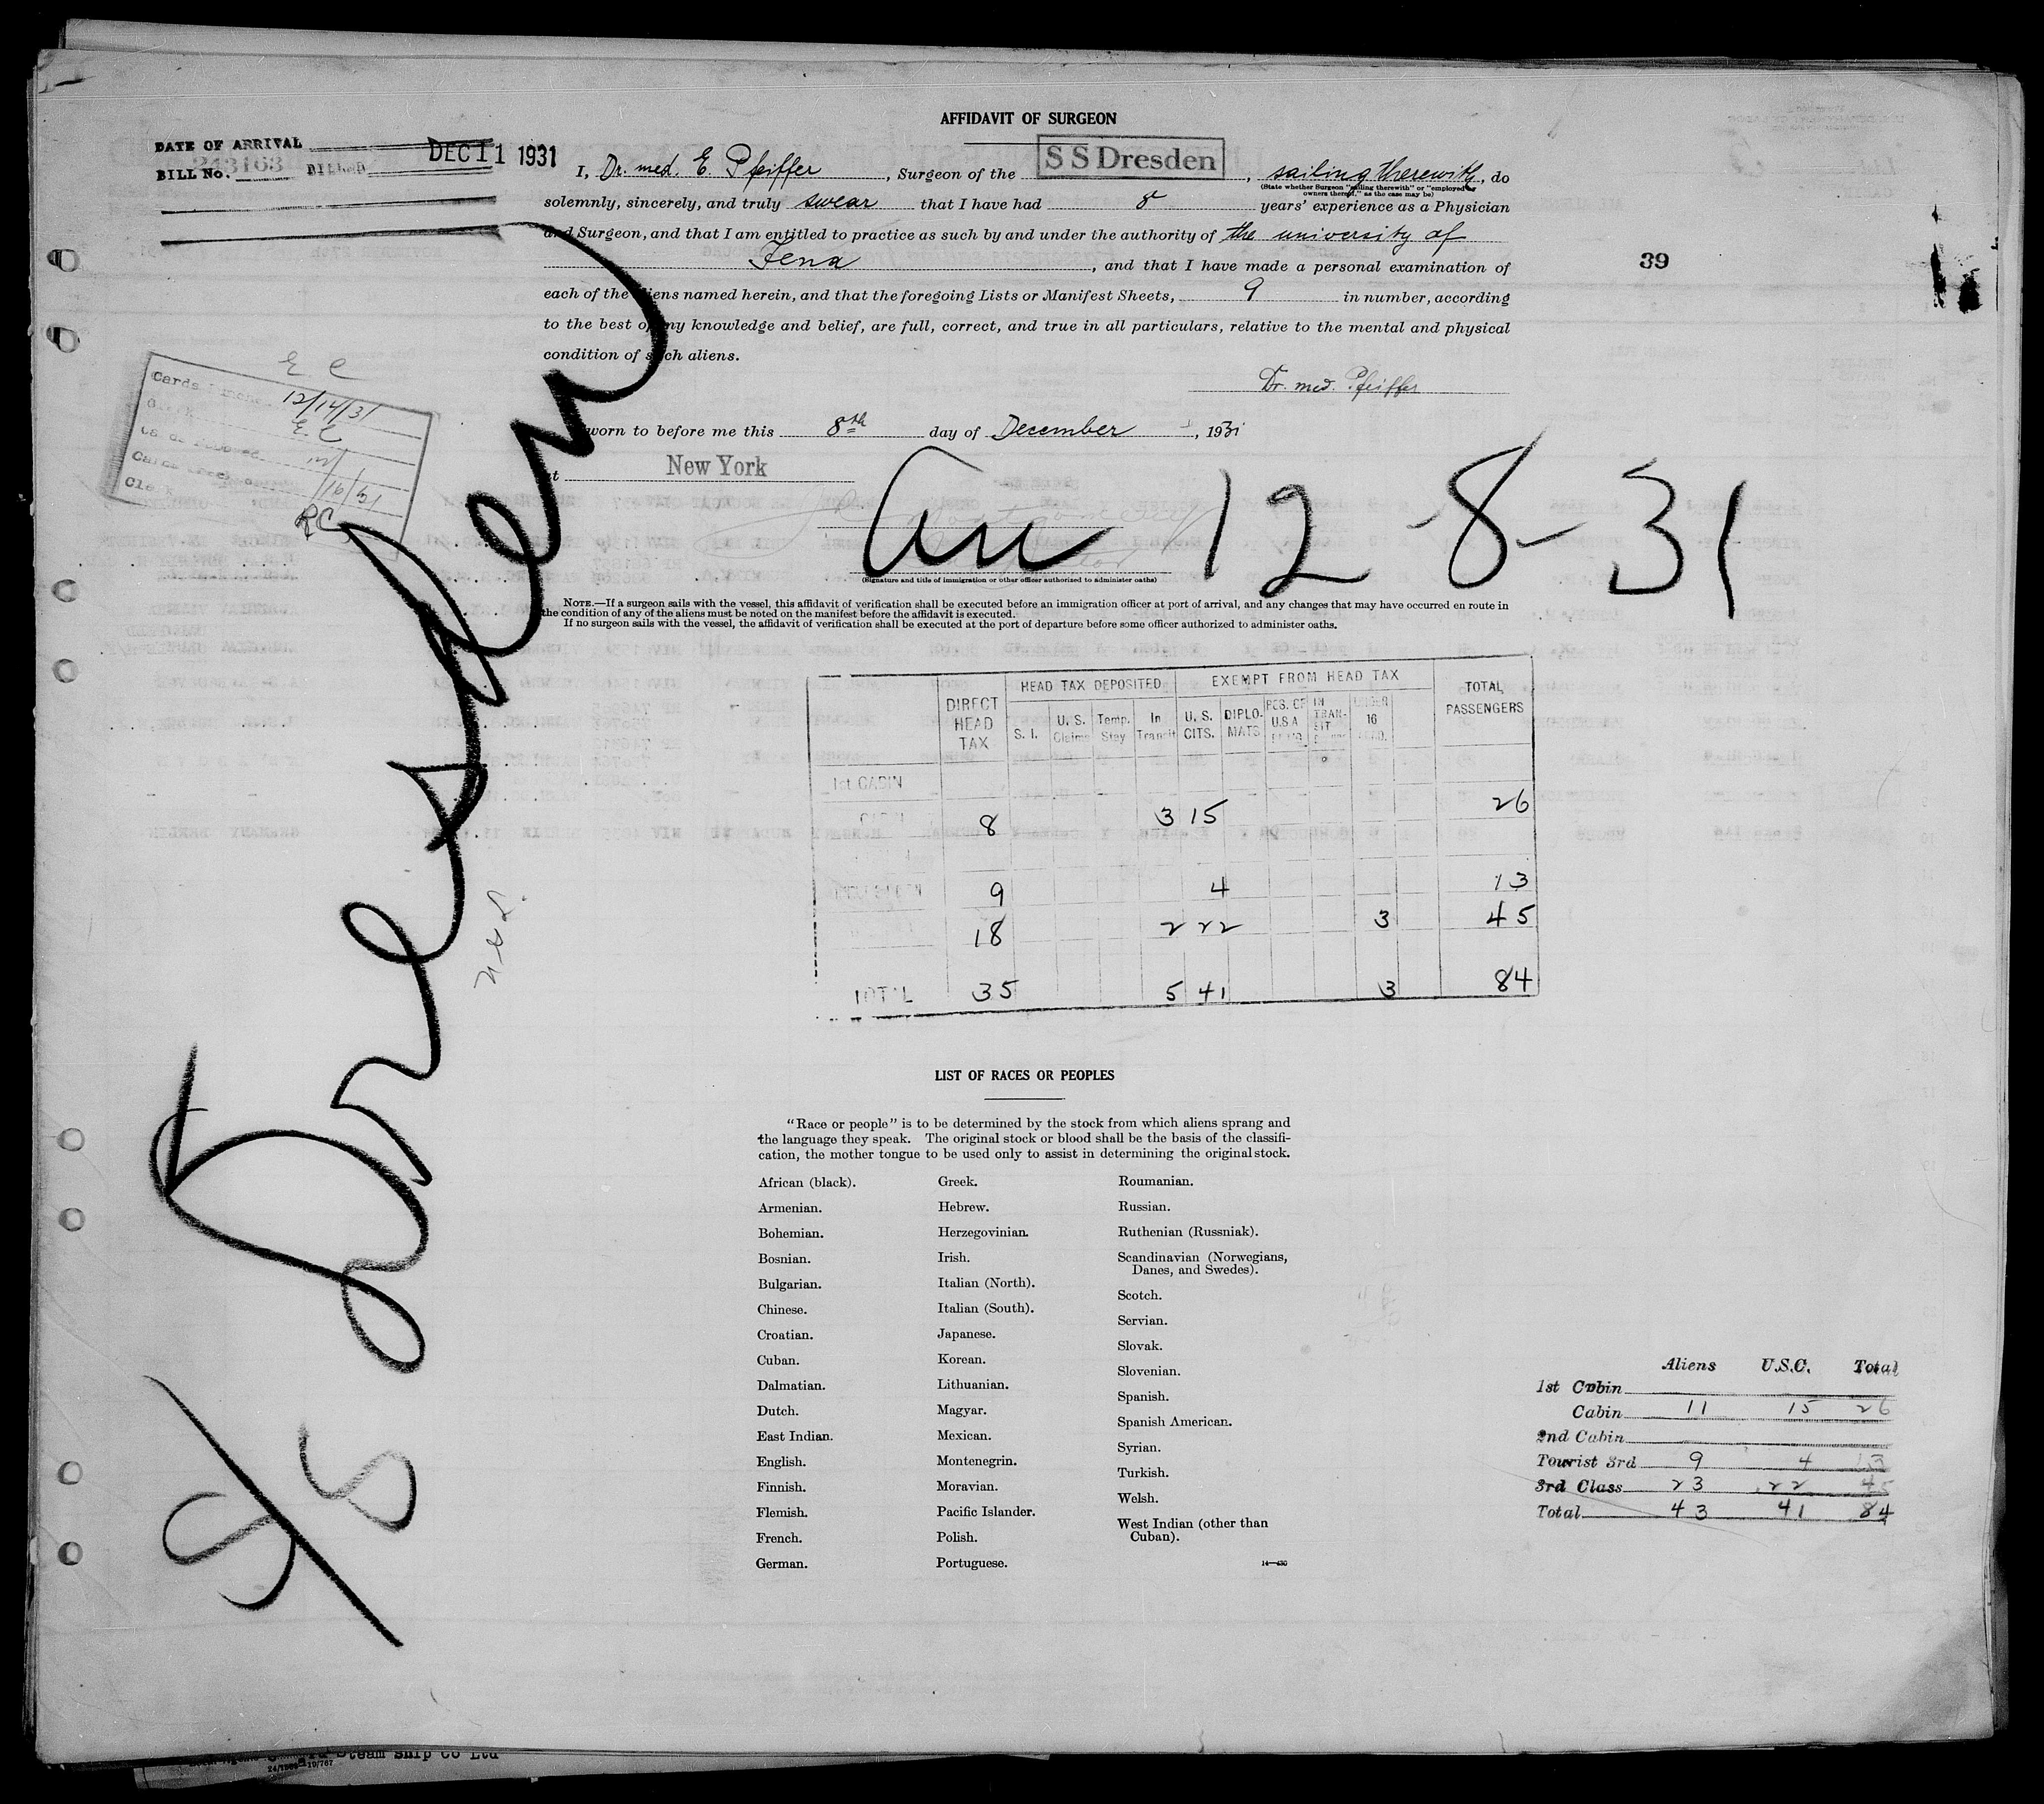 AFFIDAVIT OF SURGEON
DATE OF ARRIVAL
DEC 11 1931
BILL No. 243163 BILLED
I, Dr. med. E. Pfeiffer, Surgeon of the S S Dresden, sailing therewith, do
(State whether Surgeon "sailing therewith" or "employed by owners thereof," as the case may be)
solemnly, sincerely, and truly swear that I have had 8 years' experience as a Physician
and Surgeon, and that I am entitled to practice as such by and under the authority of the university of
Jena, and that I have made a personal examination of
39
each of the aliens named herein, and that the foregoing Lists or Manifest Sheets, 9 in number, according
to the best of my knowledge and belief, are full, correct, and true in all particulars, relative to the mental and physical
condition of such aliens.
Dr. med. Pfeiffer
Sworn to before me this 8th day of December, 1931
at New York
E. C
Cards
12/14/31
Clerk E.C
Clerk RC
Arr 12-8-31
(Signature and title of immigration or other officer authorized to administer oaths)
NOTE.—If a surgeon sails with the vessel, this affidavit of verification shall be executed before an immigration officer at port of arrival, and any changes that may have occurred en route in
the condition of any of the aliens must be noted on the manifest before the affidavit is executed.
If no surgeon sails with the vessel, the affidavit of verification shall be executed at the port of departure before some officer authorized to administer oaths.
S/S Dresden
DIRECT HEAD TAX
HEAD TAX DEPOSITED
S. I.
U. S. Claims
Temp. Stay
In Transit
EXEMPT FROM HEAD TAX
U. S. CITS.
DIPLOMATS
RES. OF U.S.A
IN TRANSIT
UNDER 16
TOTAL PASSENGERS
1st CABIN
CABIN 8 3 15 26
9 4 13
18 2 22 3 45
TOTAL 35 5 41 3 84
LIST OF RACES OR PEOPLES
"Race or people" is to be determined by the stock from which aliens sprang and
the language they speak. The original stock or blood shall be the basis of the classifi-
cation, the mother tongue to be used only to assist in determining the original stock.
African (black).
Armenian.
Bohemian.
Bosnian.
Bulgarian.
Chinese.
Croatian.
Cuban.
Dalmatian.
Dutch.
East Indian.
English.
Finnish.
Flemish.
French.
German.
Greek.
Hebrew.
Herzegovinian.
Irish.
Italian (North).
Italian (South).
Japanese.
Korean.
Lithuanian.
Magyar.
Mexican.
Montenegrin.
Moravian.
Pacific Islander.
Polish.
Portuguese.
Roumanian.
Russian.
Ruthenian (Russniak).
Scandinavian (Norwegians,
Danes, and Swedes).
Scotch.
Servian.
Slovak.
Slovenian.
Spanish.
Spanish American.
Syrian.
Turkish.
Welsh.
West Indian (other than
Cuban).
14—430
Aliens U.S.C. Total
1st Cabin
Cabin 11 15 26
2nd Cabin
Tourist 3rd 9 4 13
3rd Class 23 22 45
Total 43 41 84
Steam Ship Co Ltd